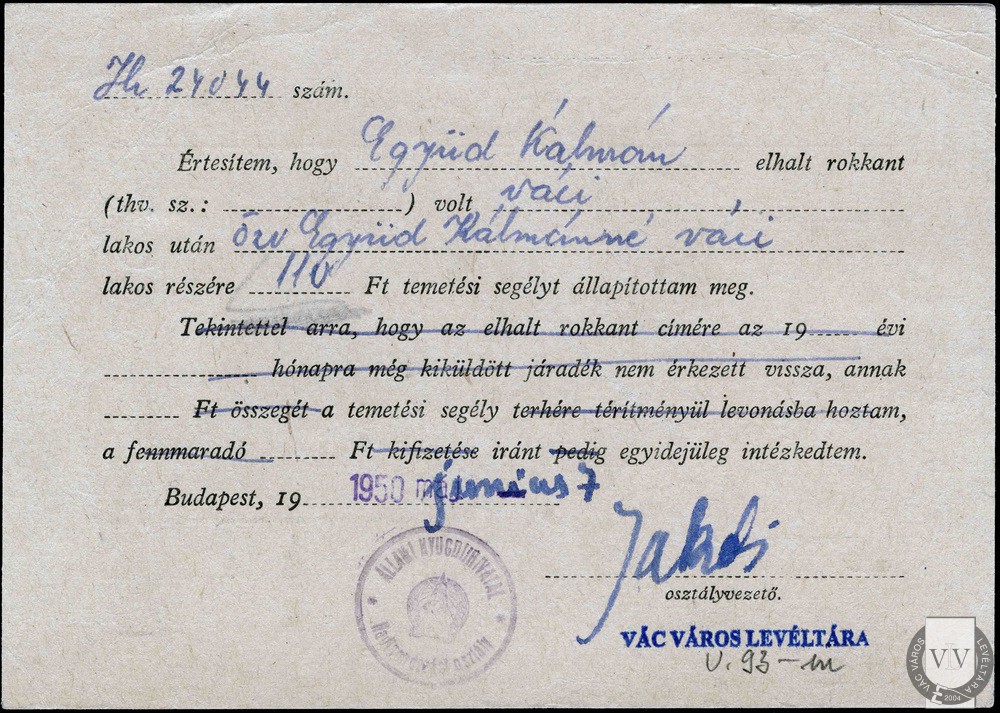 Hr 24044 szám.
Értesítem, hogy Együd Kálmán elhalt rokkant
(thv. sz.: ) volt váci
lakos után özv Együd Kálmánné váci
lakos részére 110 Ft temetési segélyt állapítottam meg.
Tekintettel arra, hogy az elhalt rokkant címére az 19 évi
hónapra még kiküldött járadék nem érkezett vissza, annak
Ft összegét a temetési segély terhére térítményül levonásba hoztam,
a fennmaradó Ft kifizetése iránt pedig egyidejüleg intézkedtem.
Budapest, 19 1950 június 7
osztályvezető.
ÁLLAMI NYUGDÍJHIVATAL
VÁC VÁROS LEVÉLTÁRA
V. 93-m
VÁC VÁROS LEVÉLTÁRA
VIV
2004